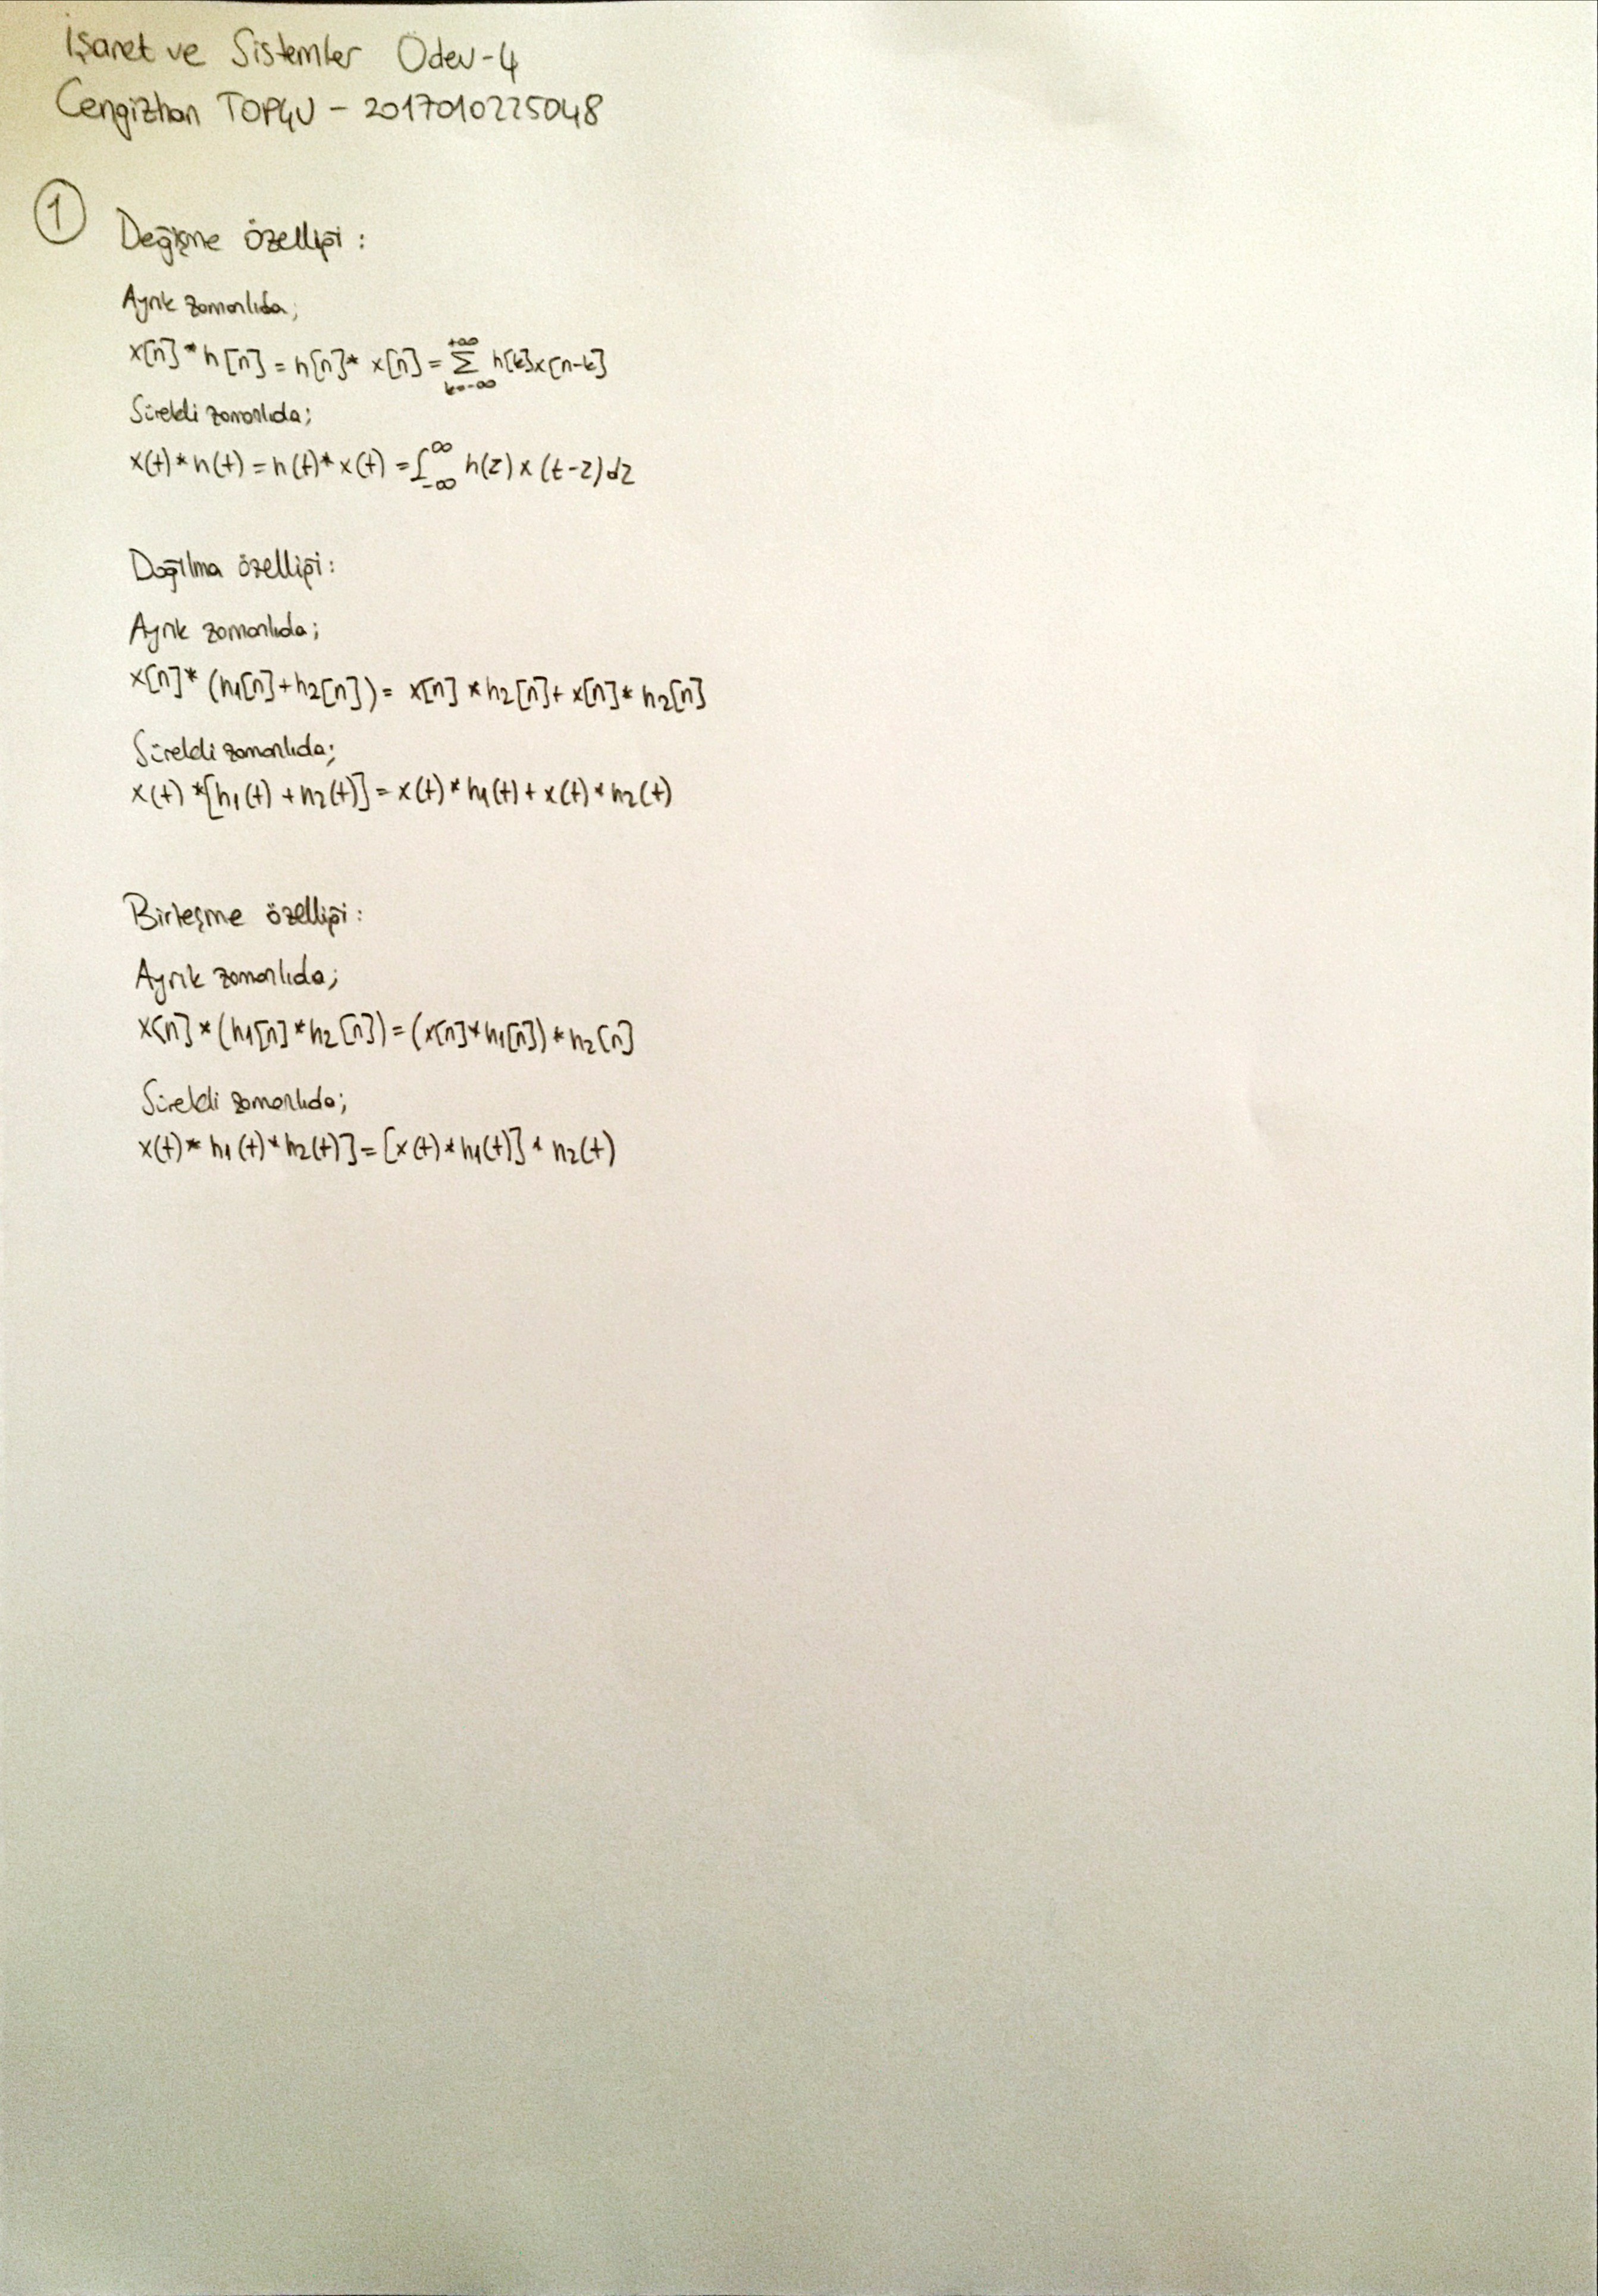 İşaret ve Sistemler Ödev-4
Cengizhan TOPÇU - 2017010225048
1
Değişme özelliği :
Ayrık zamanlıda;
x[n] * h[n] = h[n] * x[n] = +∞ Σ k=-∞ h[k]x[n-k]
Sürekli zamanlıda;
x(t) * h(t) = h(t) * x(t) = ∫_{-∞}^{∞} h(z) x (t-z) dz
Dağılma özelliği :
Ayrık zamanlıda;
x[n] * (h1[n] + h2[n]) = x[n] * h2[n] + x[n] * h2[n]
Sürekli zamanlıda;
x(t) * [h1(t) + h2(t)] = x(t) * h1(t) + x(t) * h2(t)
Birleşme özelliği :
Ayrık zamanlıda;
x[n] * (h1[n] * h2[n]) = (x[n] * h1[n]) * h2[n]
Sürekli zamanlıda;
x(t) * h1(t) * h2(t)] = [x(t) * h1(t)] * h2(t)